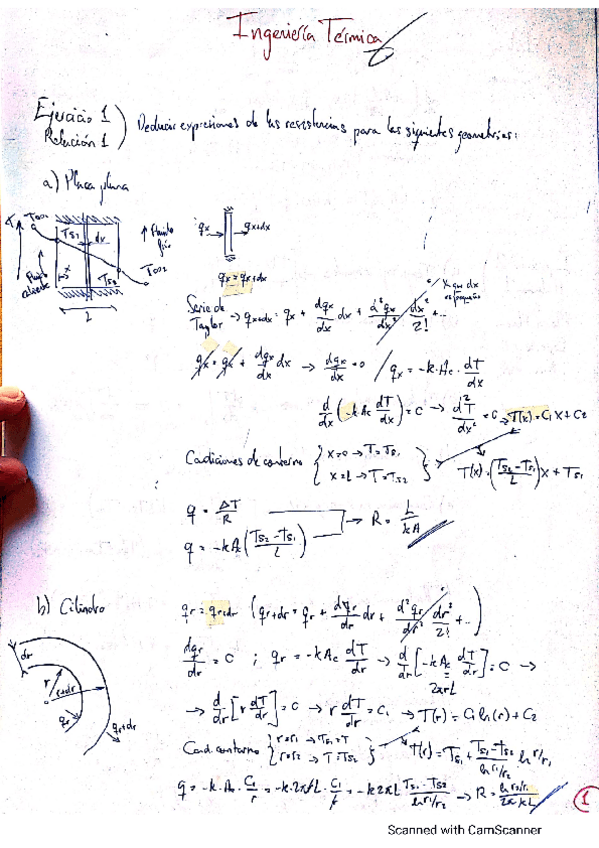 Ingeniería Térmica
Ejercicio 1
Relación 1
Deducir expresiones de las resistencias para las siguientes geometrías:
a) Placa plana
T∞1
Ts1
dx
↑ Fluido frío
Fluido caliente
x
Ts2
T∞2
L
qx → qx+dx
qx = qx+dx
Serie de Taylor → qx+dx = qx + dqx/dx dx + d²qx/dx² dx²/2! + ...
qx = qx + dqx/dx dx → dqx/dx = 0 / qx = -k·Ac·dT/dx
d/dx(-kAc dT/dx) = 0 → d²T/dx² = 0 → T(x) = C1x + C2
Condiciones de contorno { x=0 → T=Ts1
x=L → T=Ts2 } T(x) = (Ts2-Ts1/L)x + Ts1
q = ΔT/R
q = -kA(Ts2-Ts1/L) → R = L/kA
b) Cilindro
qr = qr+dr (qr+dr = qr + dqr/dr dr + d²qr/dr² dr²/2! + ...)
dr
r
r+dr
qr
qr+dr
dqr/dr = 0 ; qr = -kAc dT/dr → d/dr[-kAc dT/dr] = 0 →
2πrL
→ d/dr[r dT/dr] = 0 → r dT/dr = C1 → T(r) = C1 ln(r) + C2
Cond. contorno { r=r1 → Ts1=T
r=r2 → T=Ts2 } T(r) = Ts1 + Ts1-Ts2/ln r1/r2 ln r/r1
q = -k·Ac·C1/r = -k·2πrL·C1/r = -k2πL Ts1-Ts2/ln r1/r2 → R = ln r2/r1/2πkL
1
Scanned with CamScanner